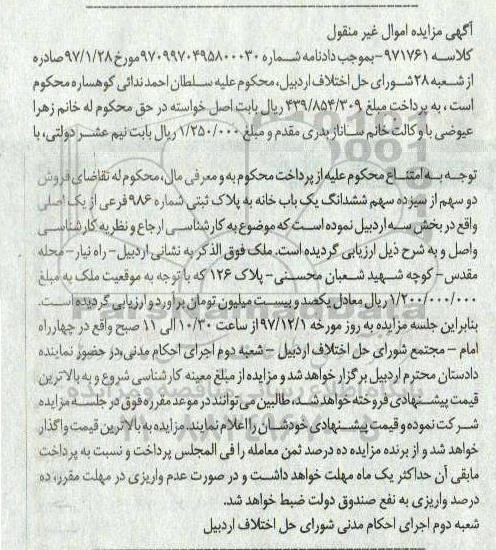 آگهی مزایده اموال غیر منقول
کلاسه ۹۷۱۷۶۱-بموجب دادنامه شماره ۹۷۰۹۹۷۰۴۹۵۸۰۰۰۳۰مورخ ۹۷/۱/۲۸صادره
از شعبه ۲۸ شورای حل اختلاف اردبیل، محکوم علیه سلطان احمد ندائی کوهساره محکوم
است ، به پرداخت مبلغ ۴۳۹/۸۵۴/۳۰۹ ریال بابت اصل خواسته در حق محکوم له خانم زهرا
عیوضی با وکالت خانم ساناز بدری مقدم و مبلغ ۱/۲۵۰/۰۰۰ ریال بابت نیم عشر دولتی، با
توجه به امتناع محکوم علیه از پرداخت محکوم به و معرفی مال، محکوم له تقاضای فروش
دو سهم از سیزده سهم ششدانگ یک باب خانه به پلاک ثبتی شماره ۹۸۶ فرعی از یک اصلی
واقع در بخش سه اردبیل نموده است که موضوع به کارشناسی ارجاع و نظریه کارشناسی
واصل و به شرح ذیل ارزیابی گردیده است. ملک فوق الذکر به نشانی اردبیل- راه نیار- محله
مقدس- کوچه شهید شعبان محسنی- پلاک ۱۲۶ که با توجه به موقعیت ملک به مبلغ
۱/۲۰۰/۰۰۰/۰۰۰ ریال معادل یکصد و بیست میلیون تومان برآورد و ارزیابی گردیده است.
بنابراین جلسه مزایده به روز مورخه ۹۷/۱۲/۱ از ساعت ۱۰/۳۰ الی ۱۱ صبح واقع در چهارراه
امام - مجتمع شورای حل اختلاف اردبیل - شعبه دوم اجرای احکام مدنی،در حضور نماینده
دادستان محترم اردبیل برگزار خواهد شد و مزایده از مبلغ معینه کارشناسی شروع و به بالاترین
قیمت پیشنهادی فروخته خواهد شد، طالبین می توانند در موعد مقرره فوق در جلسه مزایده
شرکت نموده و قیمت پیشنهادی خودشان را اعلام نمایند. مزایده به بالاترین قیمت واگذار
خواهد شد و از برنده مزایده ده درصد ثمن معامله را فی المجلس پرداخت و نسبت به پرداخت
مابقی آن حداکثر یک ماه مهلت خواهد داشت و در صورت عدم واریزی در مهلت مقرر، ده
درصد واریزی به نفع صندوق دولت ضبط خواهد شد.
شعبه دوم اجرای احکام مدنی شورای حل اختلاف اردبیل